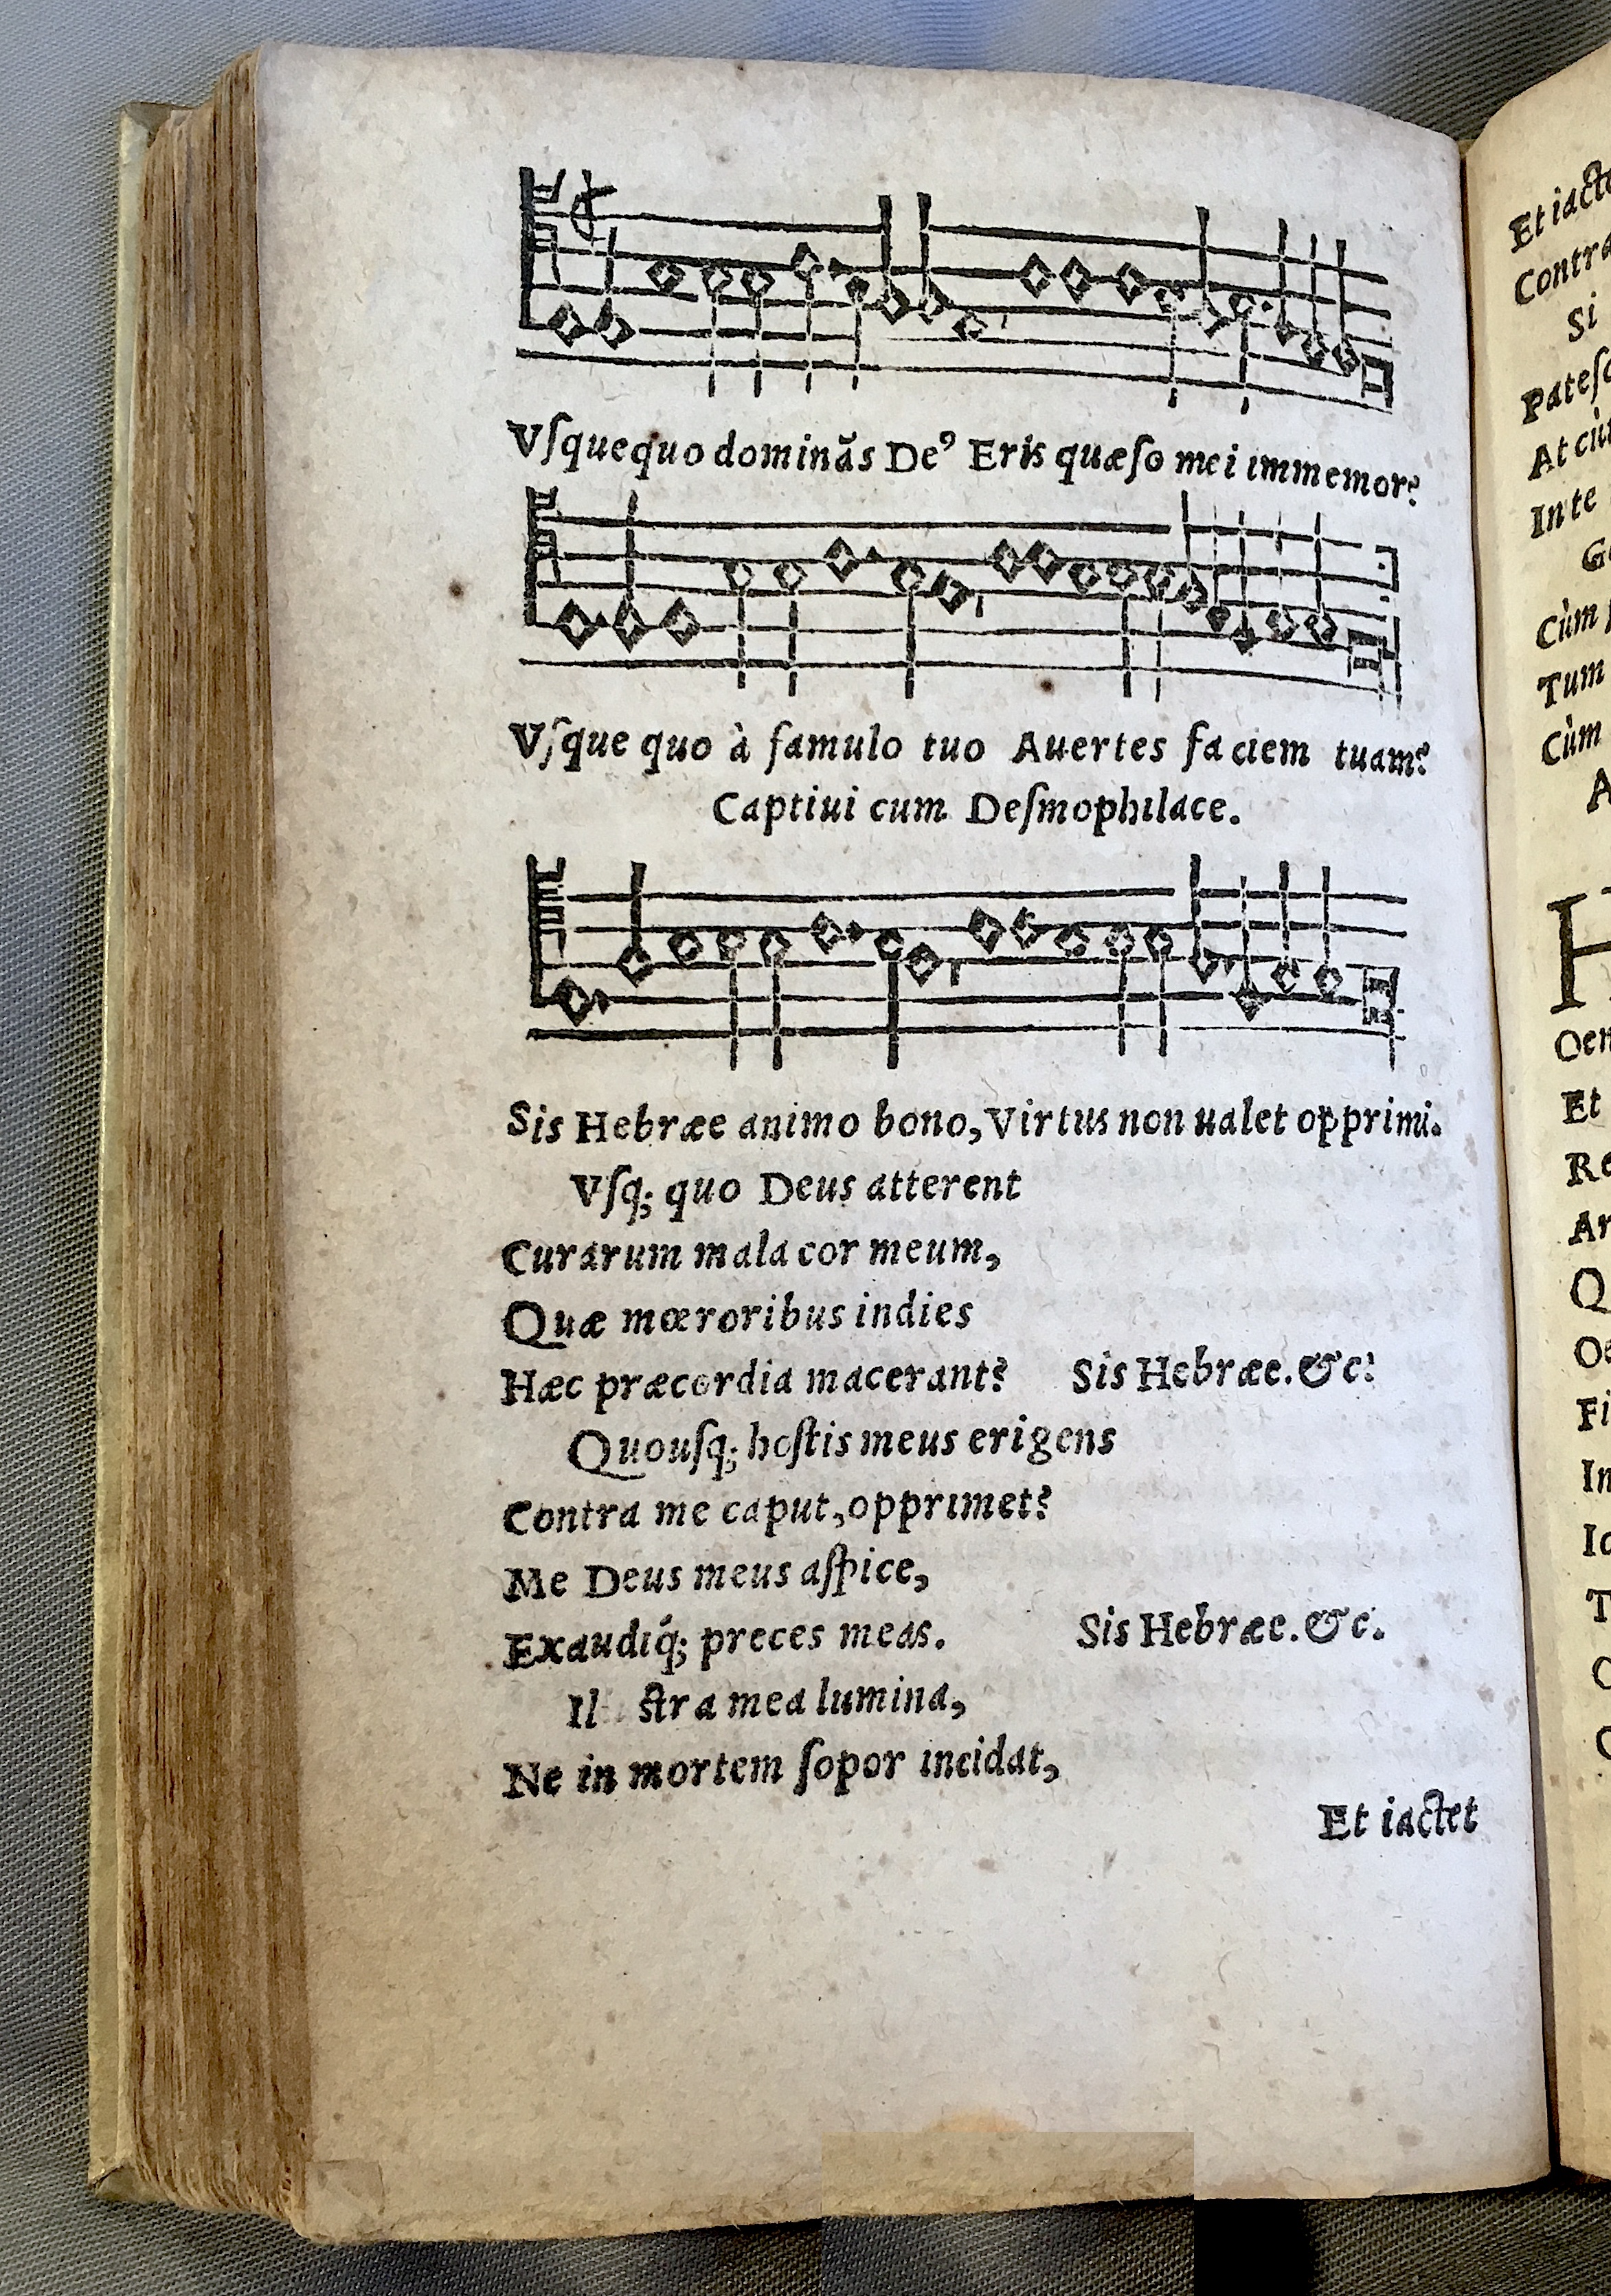 Vſquequo dominās De⁹ Eris quæſo mei immemor?
Vſque quo à famulo tuo Auertes faciem tuam?
Captiui cum Deſmophilace.
Sis Hebræe animo bono, Virtus non ualet opprimi.
Vſq; quo Deus atterent
Curarum mala cor meum,
Quæ mœroribus indies
Hæc præcordia macerant? Sis Hebræe. &c:
Quouſq; hoſtis meus erigens
Contra me caput, opprimet?
Me Deus meus aſpice,
Exaudiq́; preces meas. Sis Hebræe. &c.
Il ſtra mea lumina,
Ne in mortem ſopor incidat,
Et iactet
Contra
Si
At cùm
In te
Cùm
Tum
Cùm
A
H
Et